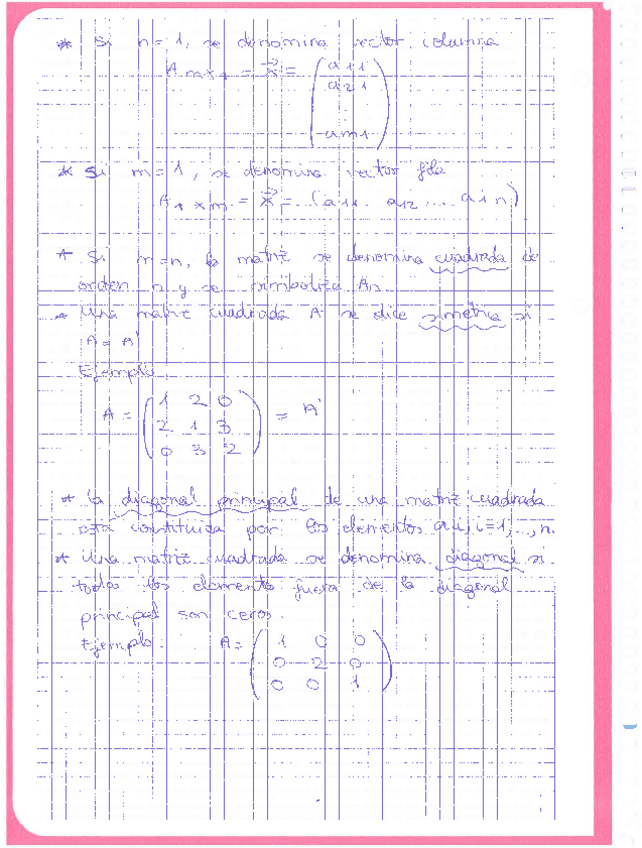 * Si n=1, se denomina vector columna
A m×1 = x⃗ = (a11
a21
.
am1)
* Si m=1, se denomina vector fila
A1×m = x⃗ = (a11 a12 ... a1n)
* Si m=n, la matriz se denomina cuadrada de
orden n y se simboliza An
* Una matriz cuadrada A se dice simetrica si
A = A'
Ejemplo
A = (1 2 0
2 1 3
0 3 2) = A'
* La diagonal principal de una matriz cuadrada
esta constituida por los elementos aii, i=1,..,n.
* Una matriz cuadrada se denomina diagonal si
todos los elementos fuera de la diagonal
principal son ceros.
Ejemplo: A= (1 0 0
0 2 0
0 0 1)